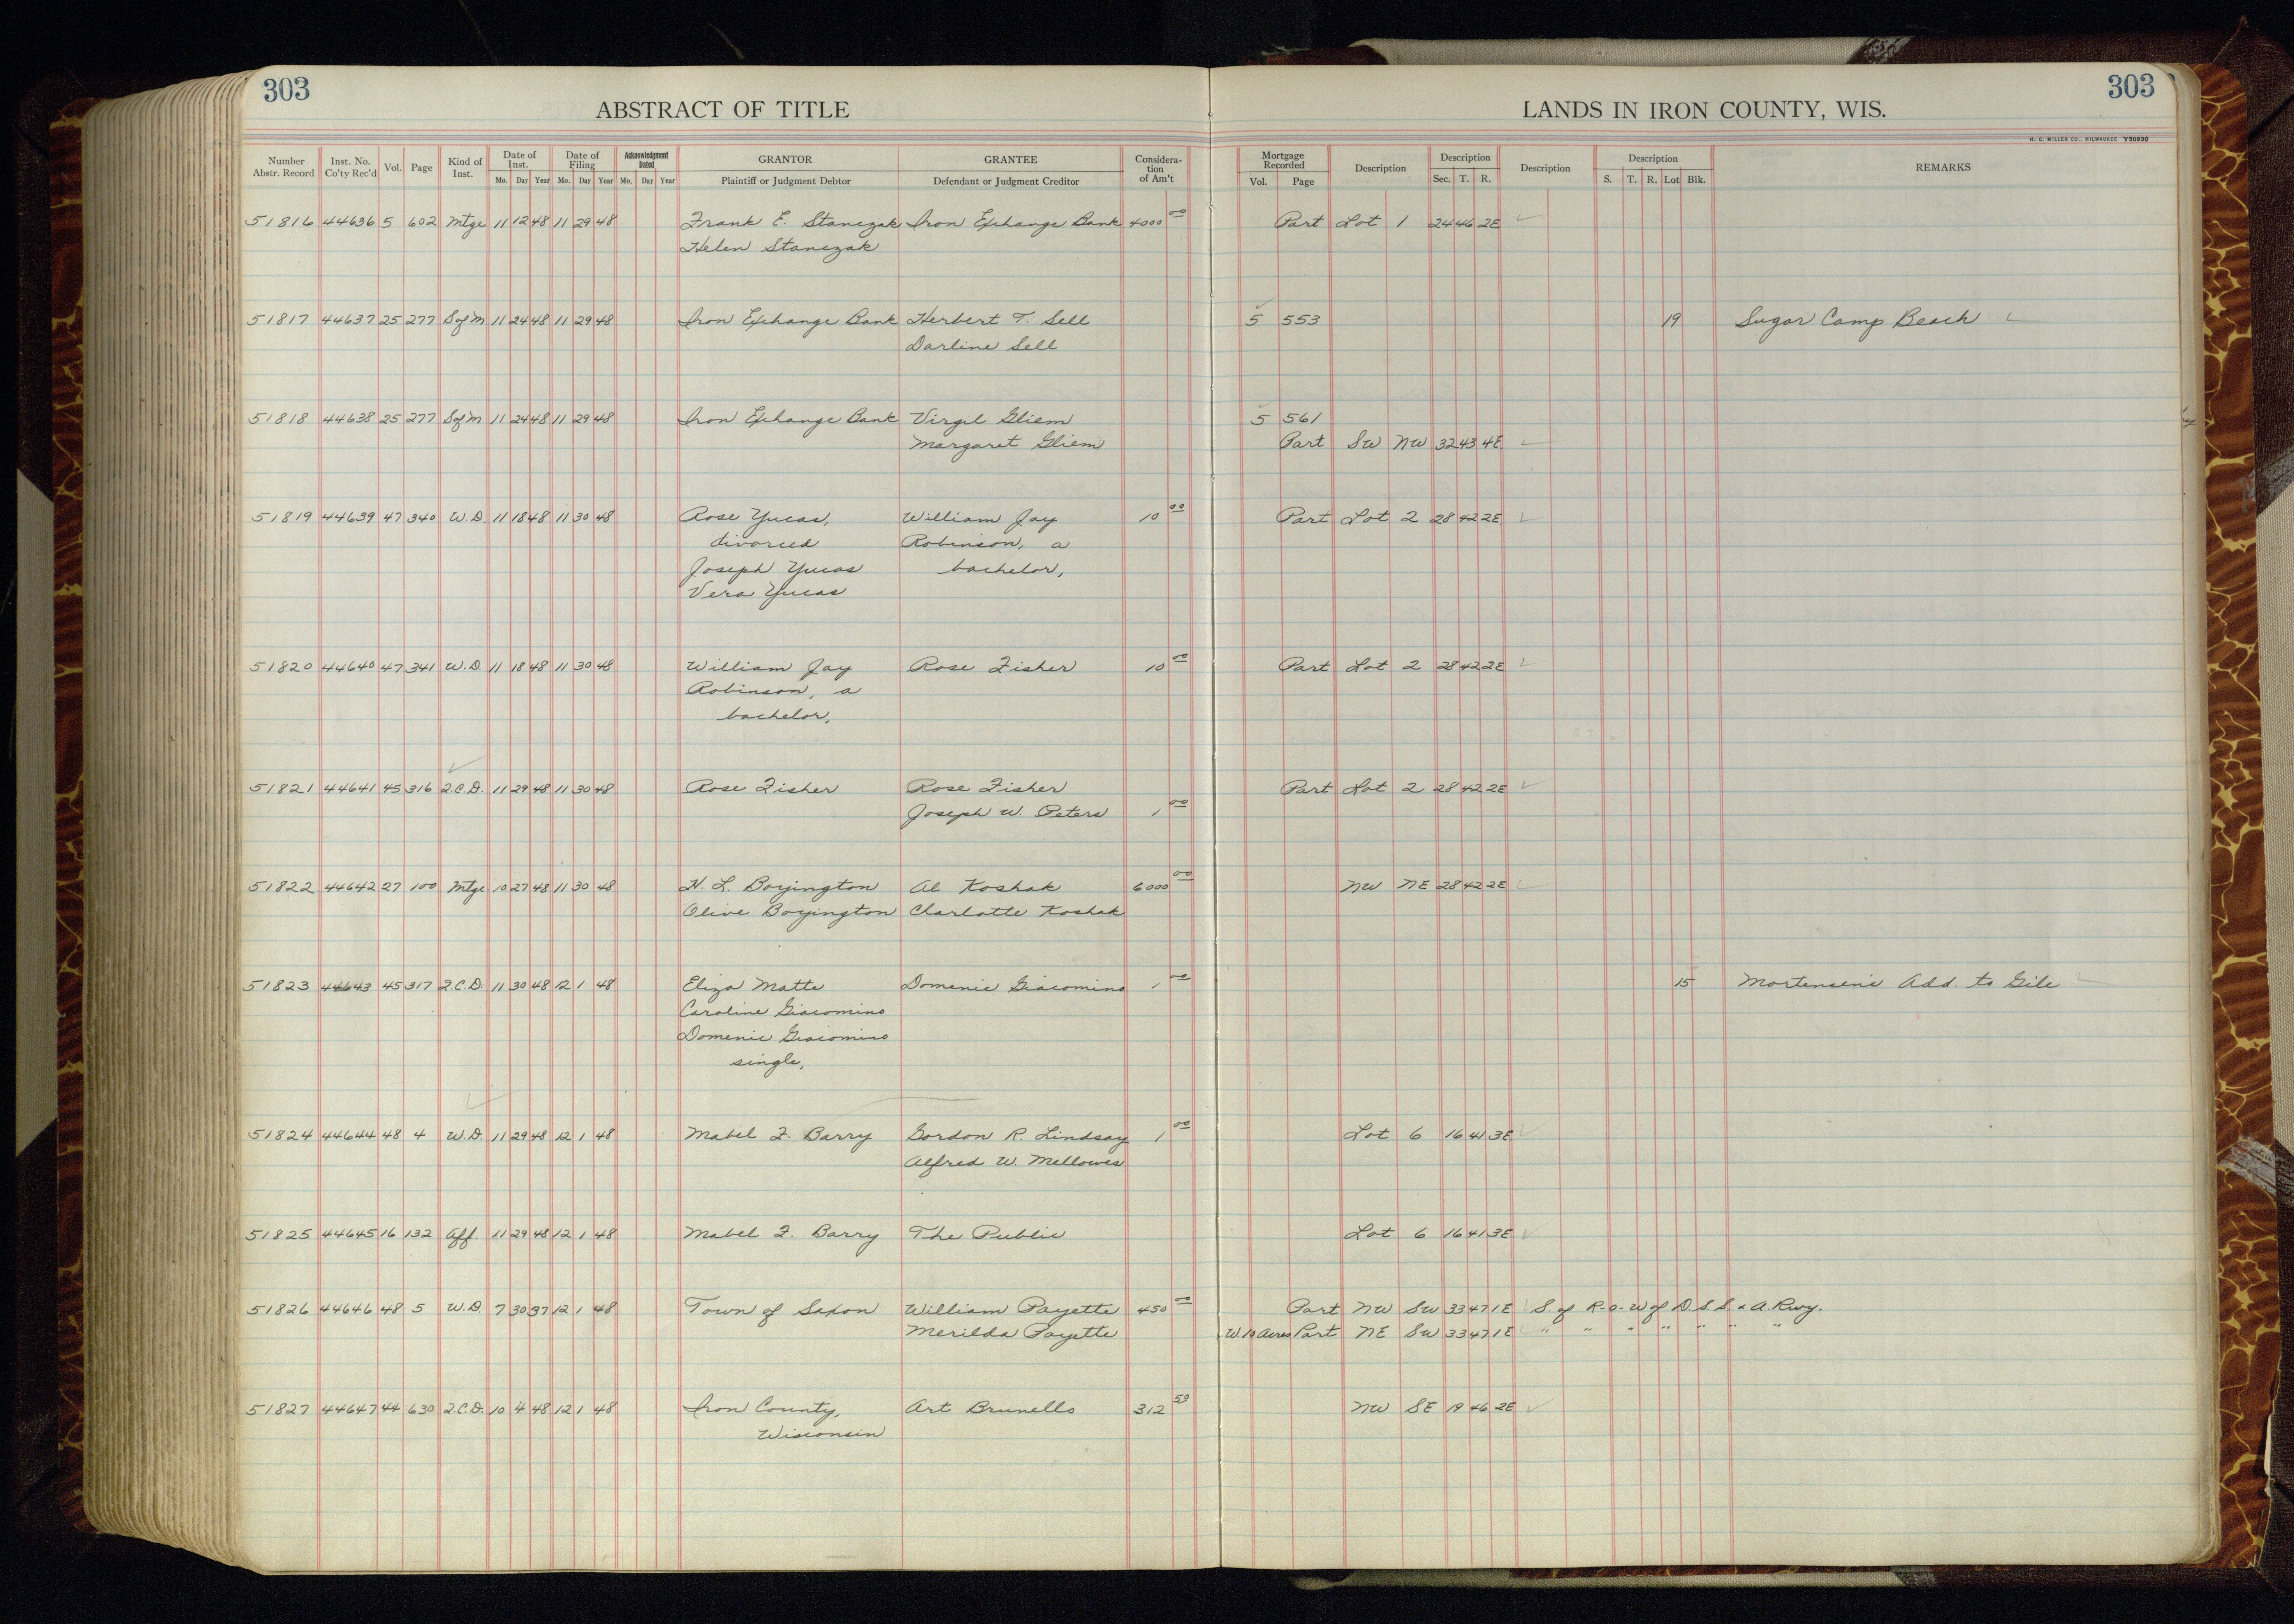 303
303
ABSTRACT OF TITLE
LANDS IN IRON COUNTY, WIS.
H. C. MILLER CO., MILWAUKEE Y50930
Number Abstr. Record Inst. No. Co'ty Rec'd Vol. Page Kind of Inst. Date of Inst. Mo. Day Year Date of Filing Mo. Day Year Acknowledgment Dated Mo. Day Year GRANTOR Plaintiff or Judgment Debtor GRANTEE Defendant or Judgment Creditor Considera-tion of Am't Mortgage Recorded Vol. Page Description Description Sec. T. R. Description Description S. T. R. Lot Blk. REMARKS
51816 44636 5 602 Mtge 11 12 48 11 29 48 Frank E. Stanczak Iron Exchange Bank 4000 00 Part Lot 1 24 46 2E
Helen Stanczak
51817 44637 25 277 S of M 11 24 48 11 29 48 Iron Exchange Bank Herbert T. Sell 5 553 19 Sugar Camp Beach
Darline Sell
51818 44638 25 277 S of M 11 24 48 11 29 48 Iron Exchange Bank Virgil Gliem 5 561
Margaret Gliem Part SW NW 32 43 4E
51819 44639 47 340 W.D. 11 18 48 11 30 48 Rose Yucas, William Jay 10 00 Part Lot 2 28 42 2E
divorced Robinson, a
Joseph Yucas bachelor,
Vera Yucas
51820 44640 47 341 W.D. 11 18 48 11 30 48 William Jay Rose Fisher 10 00 Part Lot 2 28 42 2E
Robinson, a
bachelor,
51821 44641 45 316 Q.C.D. 11 29 48 11 30 48 Rose Fisher Rose Fisher Part Lot 2 28 42 2E
Joseph W. Peters 1 00
51822 44642 27 100 Mtge 10 27 48 11 30 48 H. L. Boyington Al Koshak 6000 00 NW NE 28 42 2E
Olive Boyington Charlotte Koshak
51823 44643 45 317 Q.C.D. 11 30 48 12 1 48 Eliza Matta Domenic Giacomino 1 00 15 Mortensen's Add. to Gile
Caroline Giacomino
Domenic Giacomino
single,
51824 44644 48 4 W.D. 11 29 48 12 1 48 Mabel F. Barry Gordon R. Lindsay 1 00 Lot 6 16 41 3E
Alfred W. Mellowes
51825 44645 16 132 Aff. 11 29 48 12 1 48 Mabel F. Barry The Public Lot 6 16 41 3E
51826 44646 48 5 W.D. 7 30 37 12 1 48 Town of Saxon William Payette 450 00 Part NW SW 33 47 1E S. of R-o-W of D.S.S. & A. Rwy.
Merilda Payette W. 10 Acres Part NE SW 33 47 1E " " " " " " "
51827 44647 44 630 Q.C.D. 10 4 48 12 1 48 Iron County, Art Brunello 312 59 NW SE 19 46 2E
Wisconsin